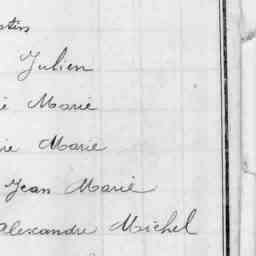 Julien
Marie
Marie
Jean Marie
Alexandre Michel